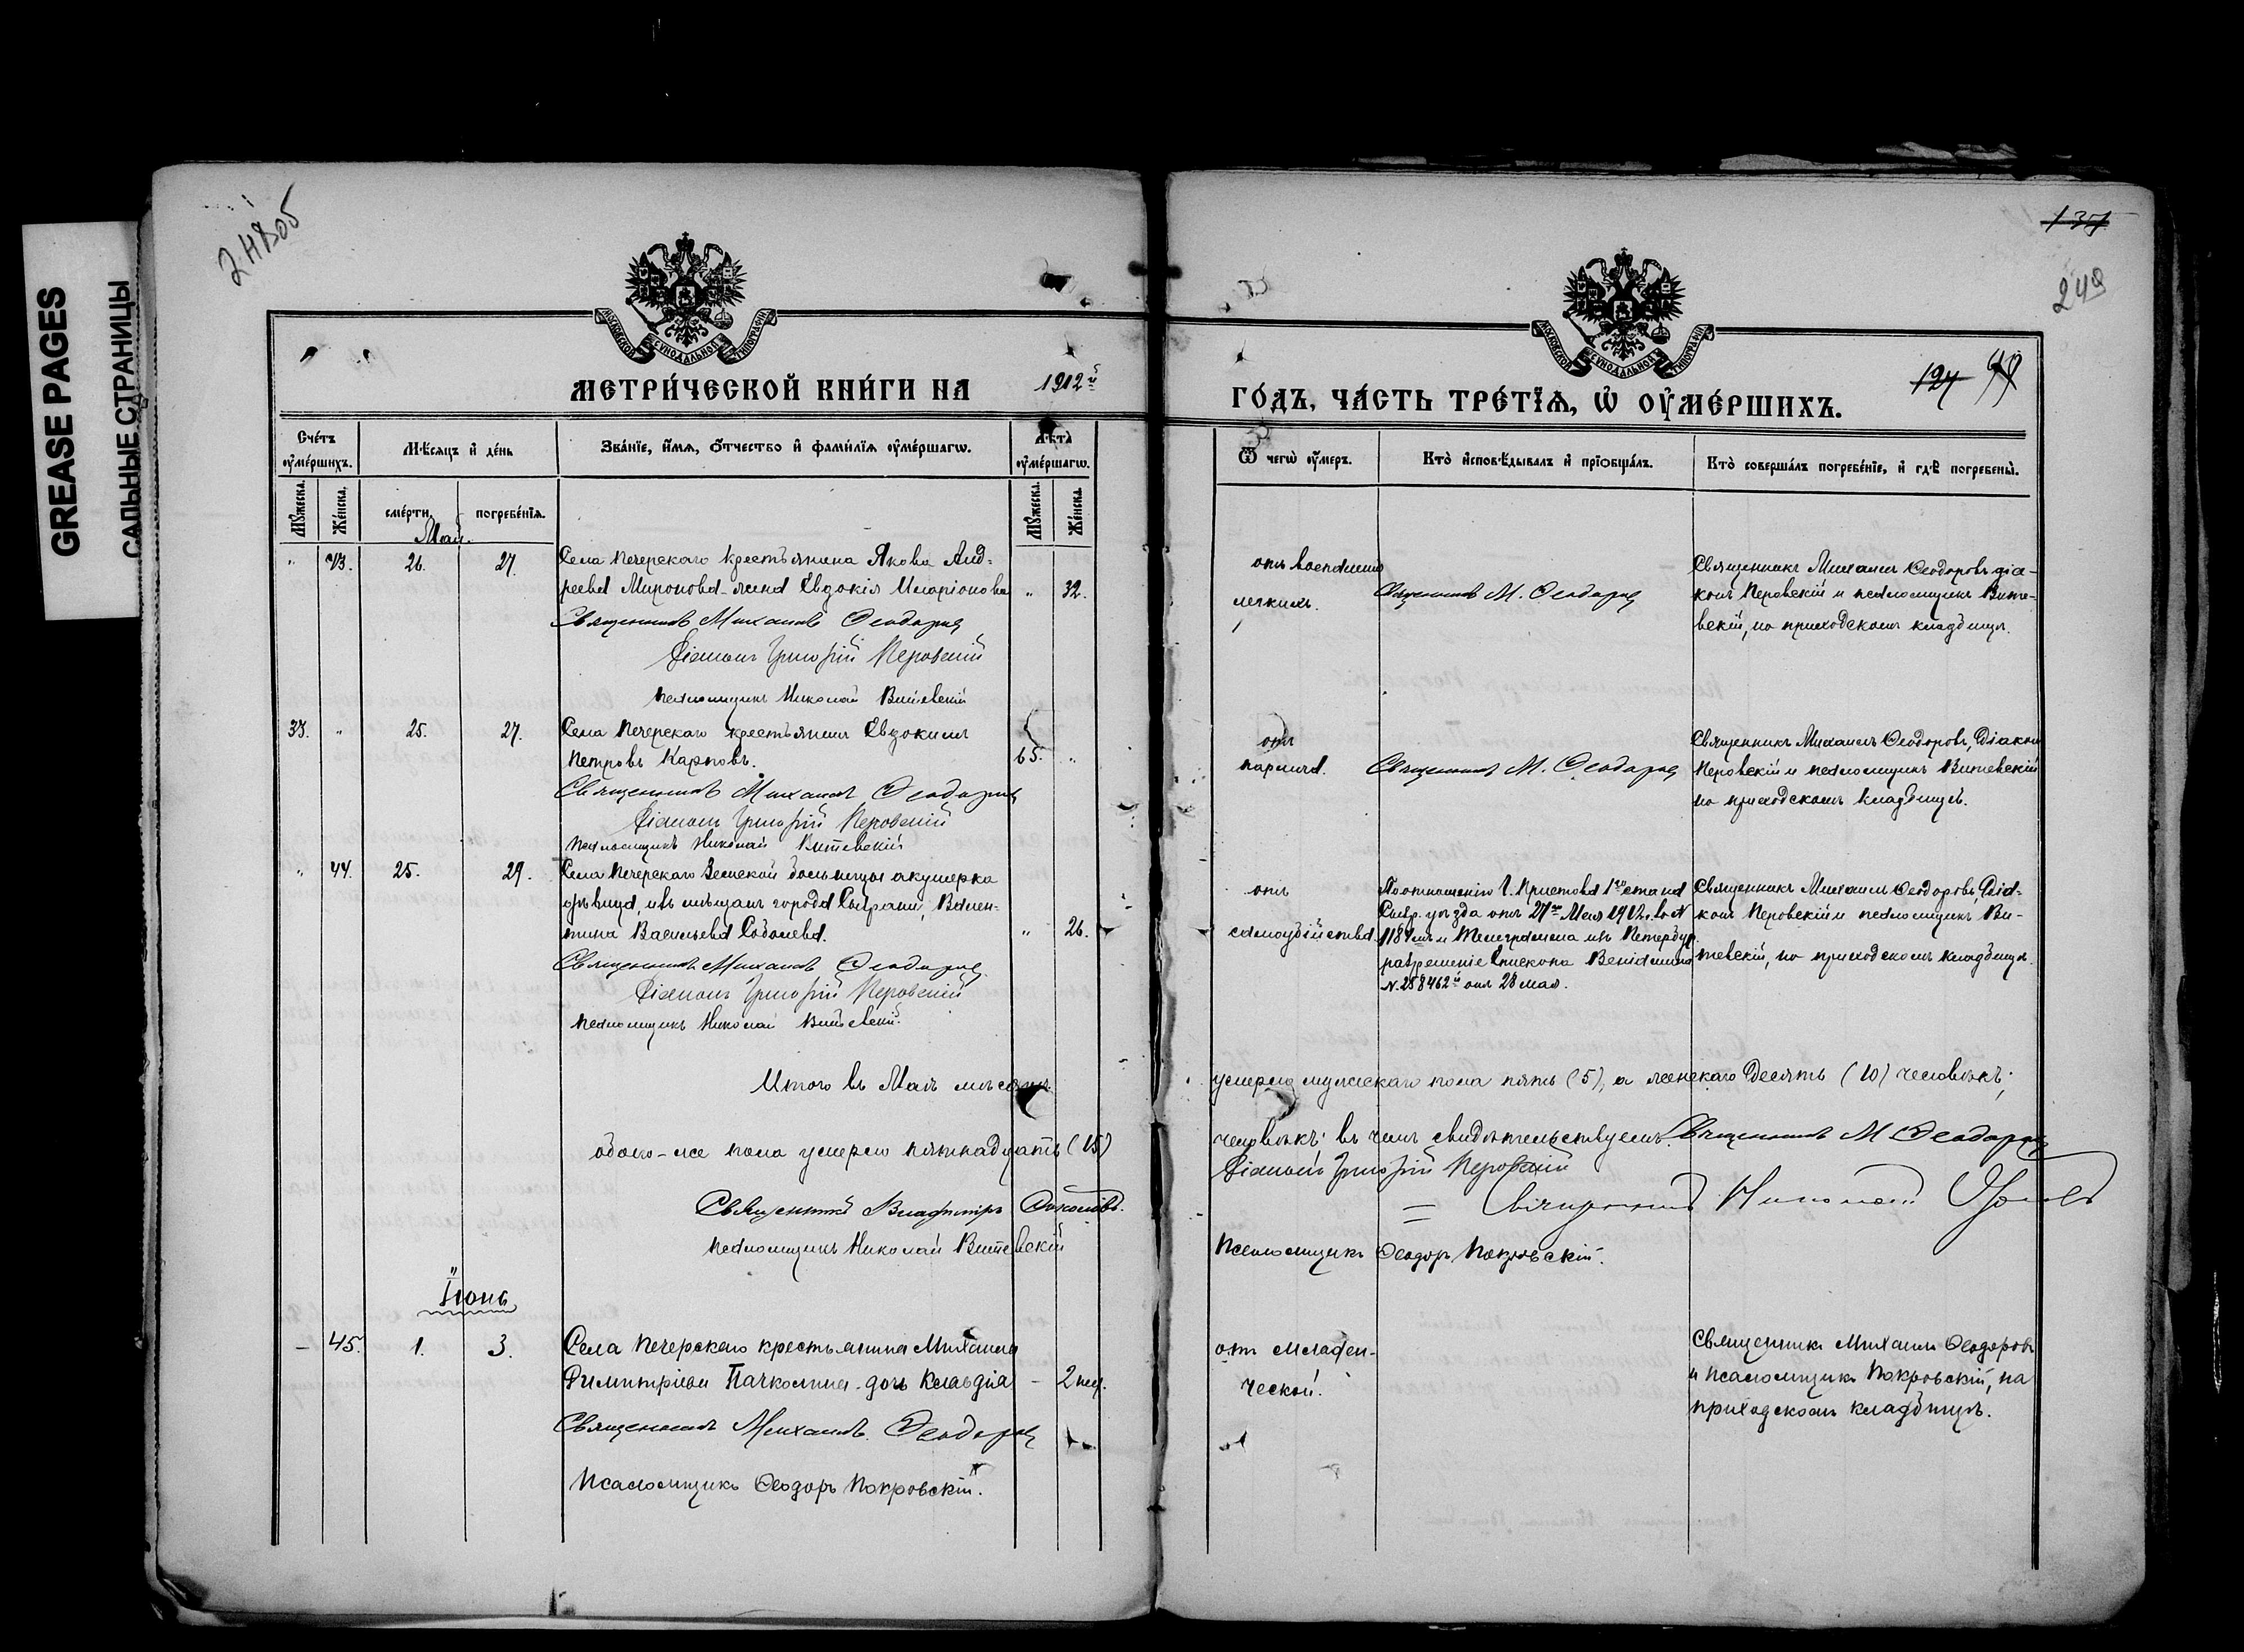 GREASE PAGES
САЛЬНЫЕ СТРАНИЦЫ
137
249
МОСКОВСКОЙ СѴНОДАЛЬНОЙ ТИПОГРАФІИ
МОСКОВСКОЙ СѴНОДАЛЬНОЙ ТИПОГРАФІИ
МЕТРИ́ЧЕСКОЙ КНИ́ГИ НА 1912й
ГО́ДЪ, ЧА́СТЬ ТРЕ́ТІѦ, Ѡ҆ ОУ҆МЕ́РШИХЪ.
124
Сче́тъ оу҆ме́ршихъ.
Мѣ́сяцъ и҆ де́нь
Зва́нїе, и҆́мѧ, ѻ҆́тчество и҆ фами́лїѧ оу҆ме́ршагѡ.
Лѣ́та оу҆ме́ршагѡ.
Ѿ чегѡ̀ оу҆́меръ.
Кто̀ и҆сповѣ́дывалъ и҆ прїѻбща́лъ.
Кто̀ соверша́лъ погребе́нїе, и҆ гдѣ̀ погребены̀.
Мꙋ́жеска.
Же́нска.
сме́рти.
погребе́нїѧ.
Мꙋ́жеска.
Же́нска.
Май.
" 43. 26. 27. Села Печерскаго крестьянина Якова Анд-
реева Миронова жена Евдокія Иларіонова " 32.
Священникъ Михаилъ Ѳеодоровъ
Діаконъ Григорій Перовскій
псаломщикъ Николай Витевскій
отъ воспаленія
легкихъ.
Священникъ М. Ѳеодоровъ
Священникъ Михаилъ Ѳеодоровъ, діа-
конъ Перовскій и псаломщикъ Вите-
вскій, на приходскомъ кладбищѣ.
33. " 25. 27. Села Печерскаго крестьянинъ Евдокимъ
Петровъ Карповъ. 65. "
Священникъ Михаилъ Ѳеодоровъ
Діаконъ Григорій Перовскій
псаломщикъ Николай Витевскій
отъ
паралича.
Священникъ М. Ѳеодоровъ
Священникъ Михаилъ Ѳеодоровъ, Діаконъ
Перовскій и псаломщикъ Витевскій
на приходскомъ кладбищѣ.
" 44. 25. 29. Села Печерскаго Земской больницы акушерка
дѣвица, изъ мѣщанъ города Сызрани, Вален-
тина Васильева Соболева. " 26.
Священникъ Михаилъ Ѳеодоровъ
Діаконъ Григорій Перовскій
псаломщикъ Николай Витевскій.
отъ
самоубійства.
По отношенію Г. Пристова 1го стана
Сызр. уѣзда отъ 27го Мая 1912 г. за N
1184мъ и Телеграмма изъ Петербур.
разрѣшеніе Епископа Веніамина
N. 258462й отъ 28 мая.
Священникъ Михаилъ Ѳеодоровъ, Діа-
конъ Перовскій и псаломщикъ Ви-
тевскій, на приходскомъ кладбищѣ.
Итого въ Маѣ мѣсяцѣ умерло мужескаго пола пять (5), а женскаго десять (10) человѣкъ;
обоего-же пола умерло пятнадцать (15) человѣкъ: въ чемъ свидѣтельствуемъ. Священникъ М Ѳеодоровъ
Діаконъ Григорій Перовскій
Священникъ Владиміръ Соколовъ.
Священникъ Николай
псаломщикъ Николай Витевскій
Псаломщикъ Ѳеодоръ Покровскій.
Іюнь
– 45. 1. 3. Села Печерскаго крестьянина Михаила
Димитріева Пачколина дочь Клавдіа – 2 нед.
Священникъ Михаилъ Ѳеодоровъ
Псаломщикъ Ѳеодоръ Покровскій.
отъ младен-
ческой.
Священникъ Михаилъ Ѳеодоровъ
и псаломщикъ Покровскій, на
приходскомъ кладбищѣ.